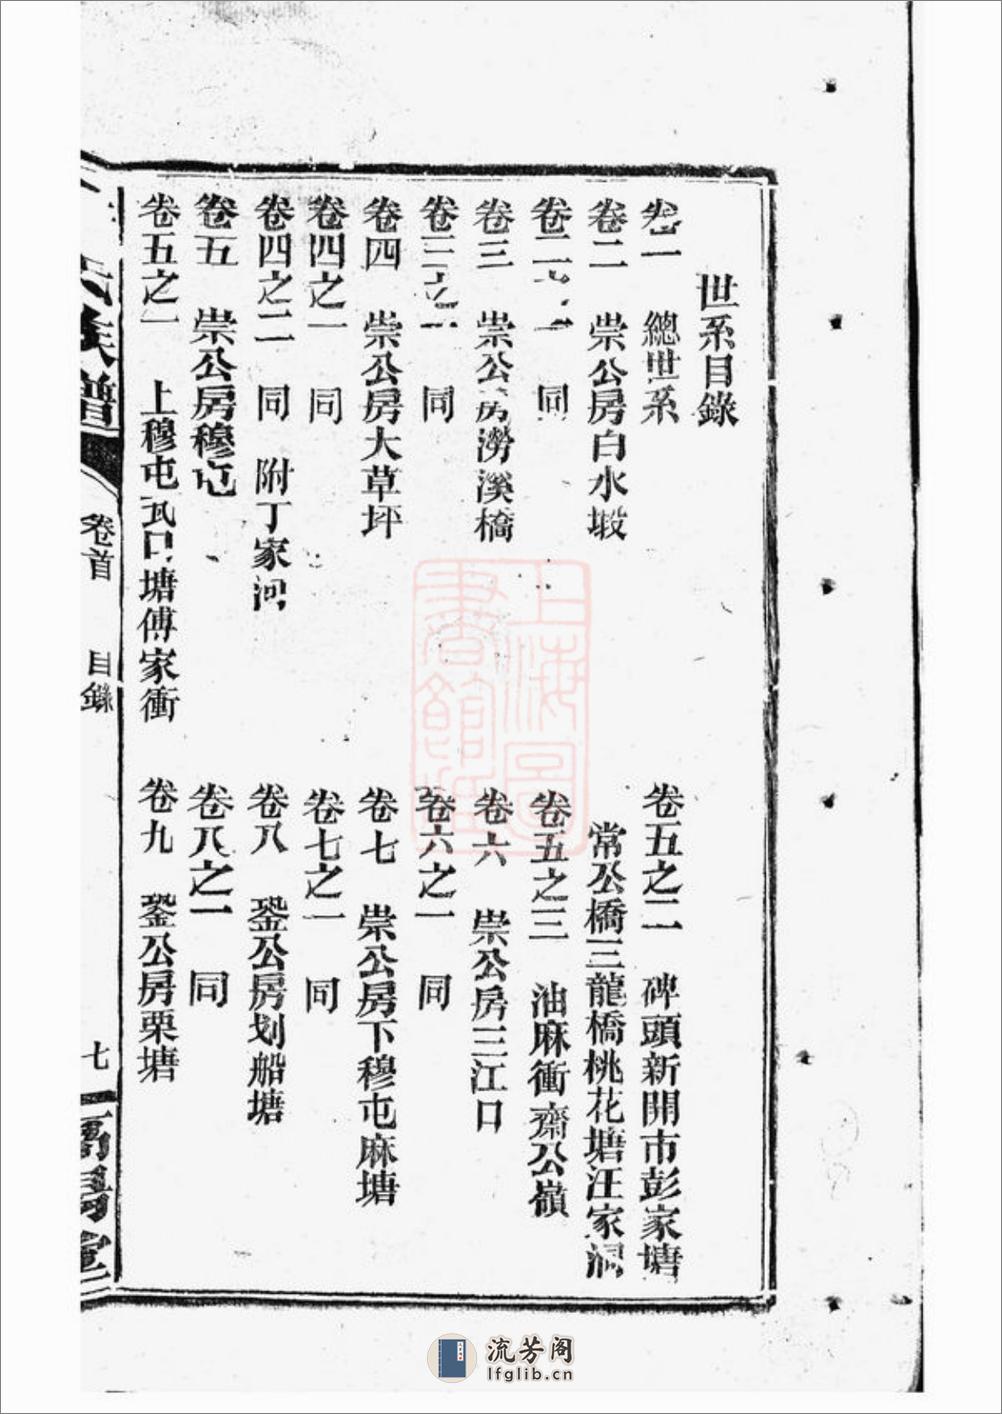 世系目錄
卷一　總世系
卷二　崇公房白水塅
卷二之一　同
卷三　崇公房澇溪橋
卷三之一　同
卷四　崇公房大草坪
卷四之一　同
卷四之二　同　附丁家河
卷五　崇公房穆屯
卷五之一　上穆屯瓦口塘傅家衝
卷五之二　碑頭新開市彭家塘
常公橋三龍橋桃花塘汪家洞
卷五之三　油麻衝齋公嶺
卷六　崇公房三江口
卷六之一　同
卷七　崇公房下穆屯麻塘
卷七之一　同
卷八　銎公房划船塘
卷八之一　同
卷九　銎公房栗塘
氏族譜
卷首　目錄
七
上海圖書館藏
流芳阁
lfglib.cn